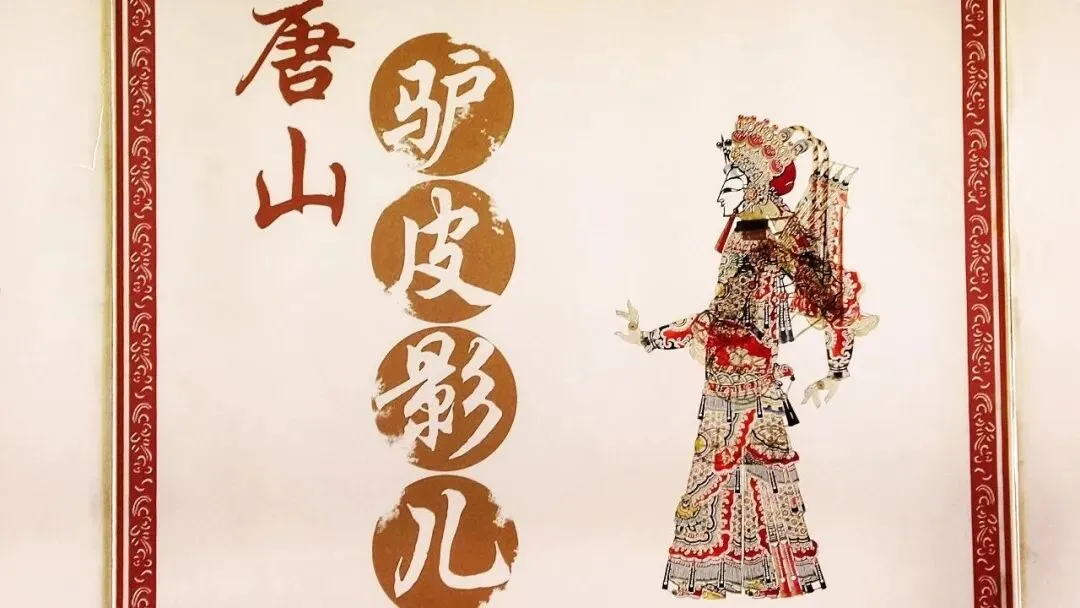 唐山
驴皮影儿